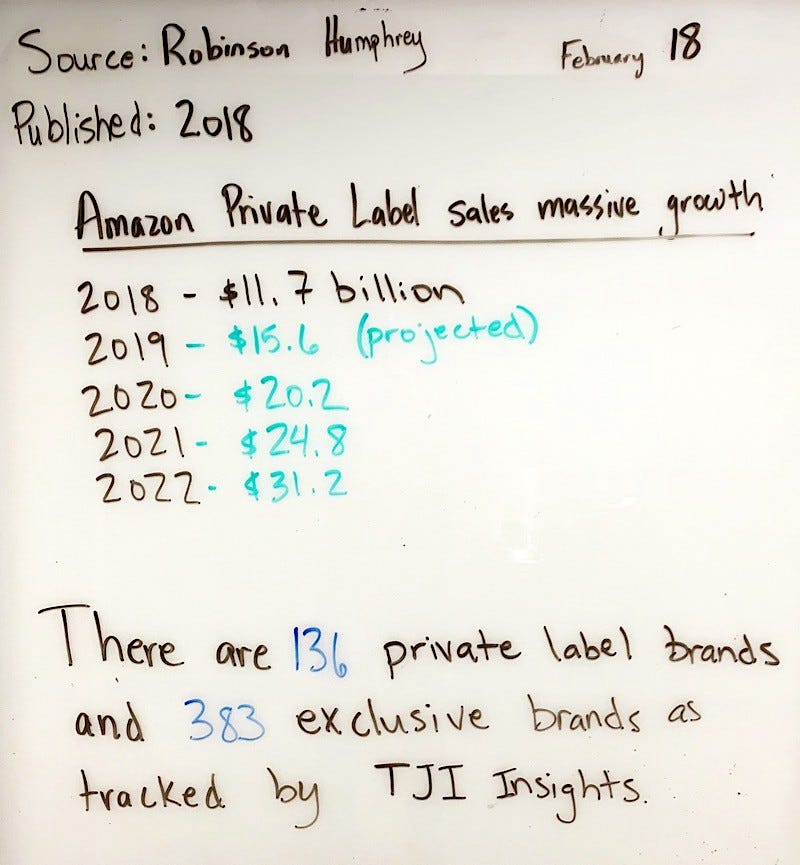 Source: Robinson Humphrey February 18
Published: 2018
Amazon Private Label sales massive growth
2018 - $11.7 billion
2019 - $15.6 (projected)
2020- $20.2
2021- $24.8
2022- $31.2
There are 136 private label brands
and 383 exclusive brands as
tracked by TJI Insights.